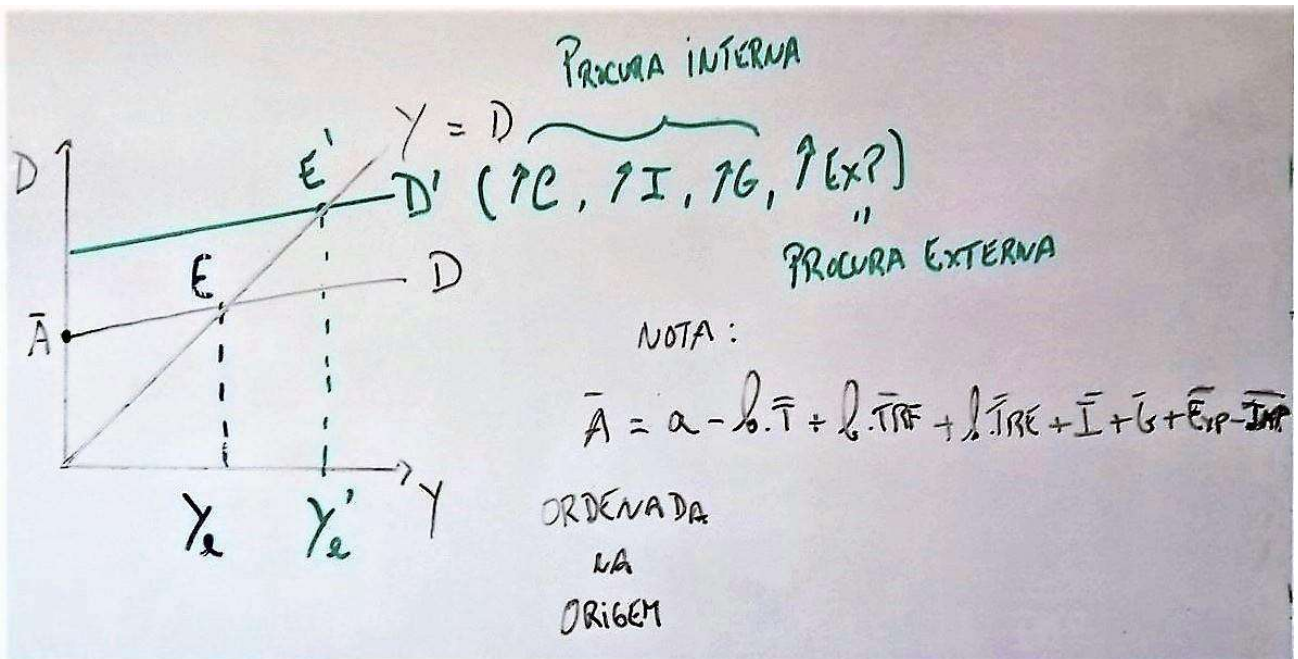 PROCURA INTERNA
Y = D
D
E'
D' (↑C, ↑I, ↑G, ↑EXP)
"
PROCURA EXTERNA
E
D
Ā
NOTA:
Ā = a - b.T̄ + b.T̄R̄F̄ + b.T̄R̄Ē + Ī + Ḡ + ĒXP - ĪMP
Ye Ye' Y
ORDENADA
NA
ORIGEM